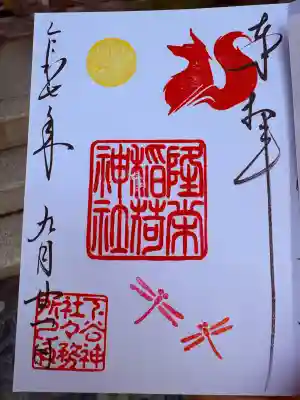 奉拝
隆栄
稲荷
神社
令和七年 九月廿 日
下谷神
社々務
所之印